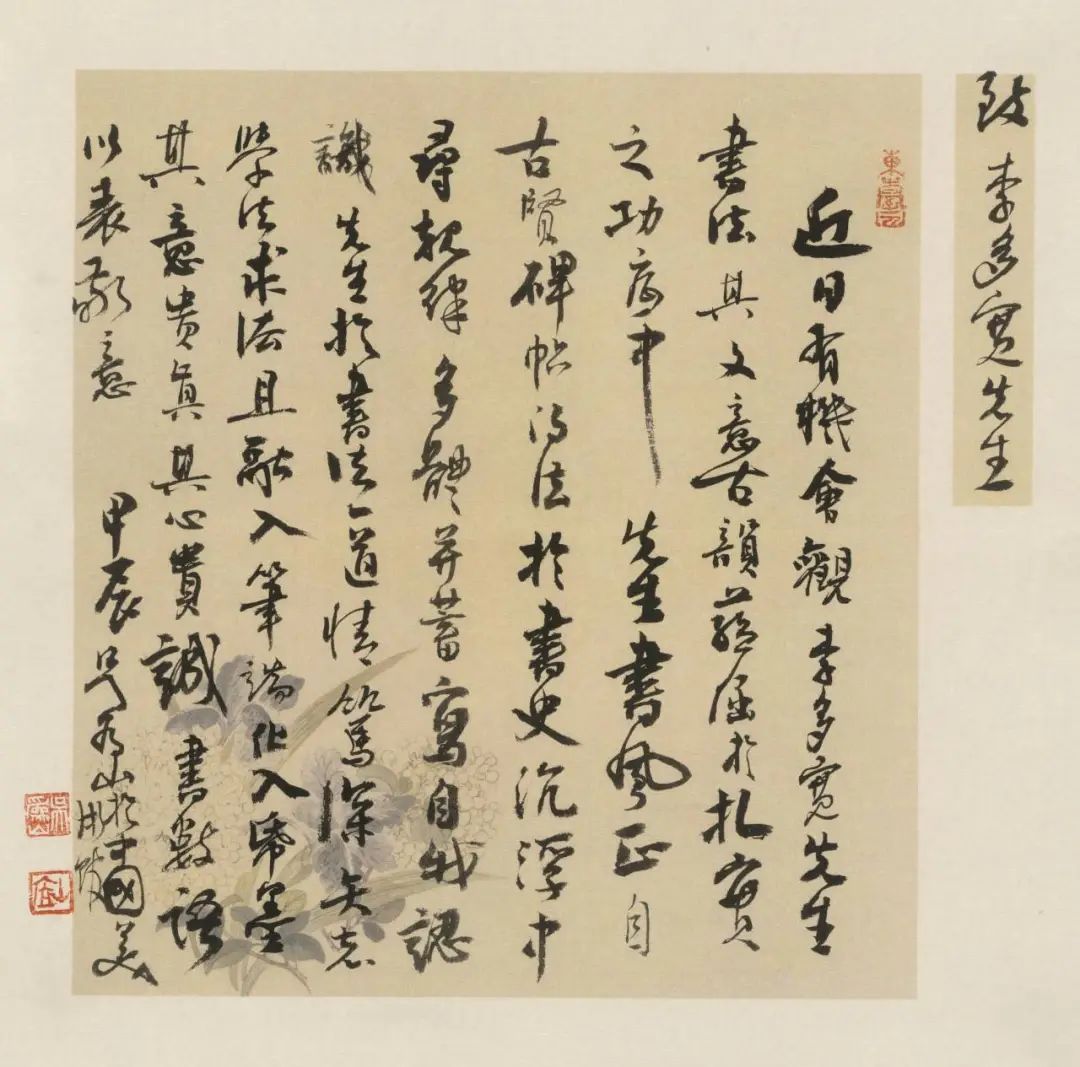 致 李多寬先生
近日有機會觀李多寬先生
書法其文意古韻蘊涵於扎實
之功底中 先生書風正自
古賢碑帖得法於書史沉浮中
尋規律多體并蓄寫自我認
識 先生於書法一道情篤深矢志
學法求法且融入筆端化入紙墨
其意貴真其心貴誠書數語
以表敬意 甲辰 吳為山於中國美
術館